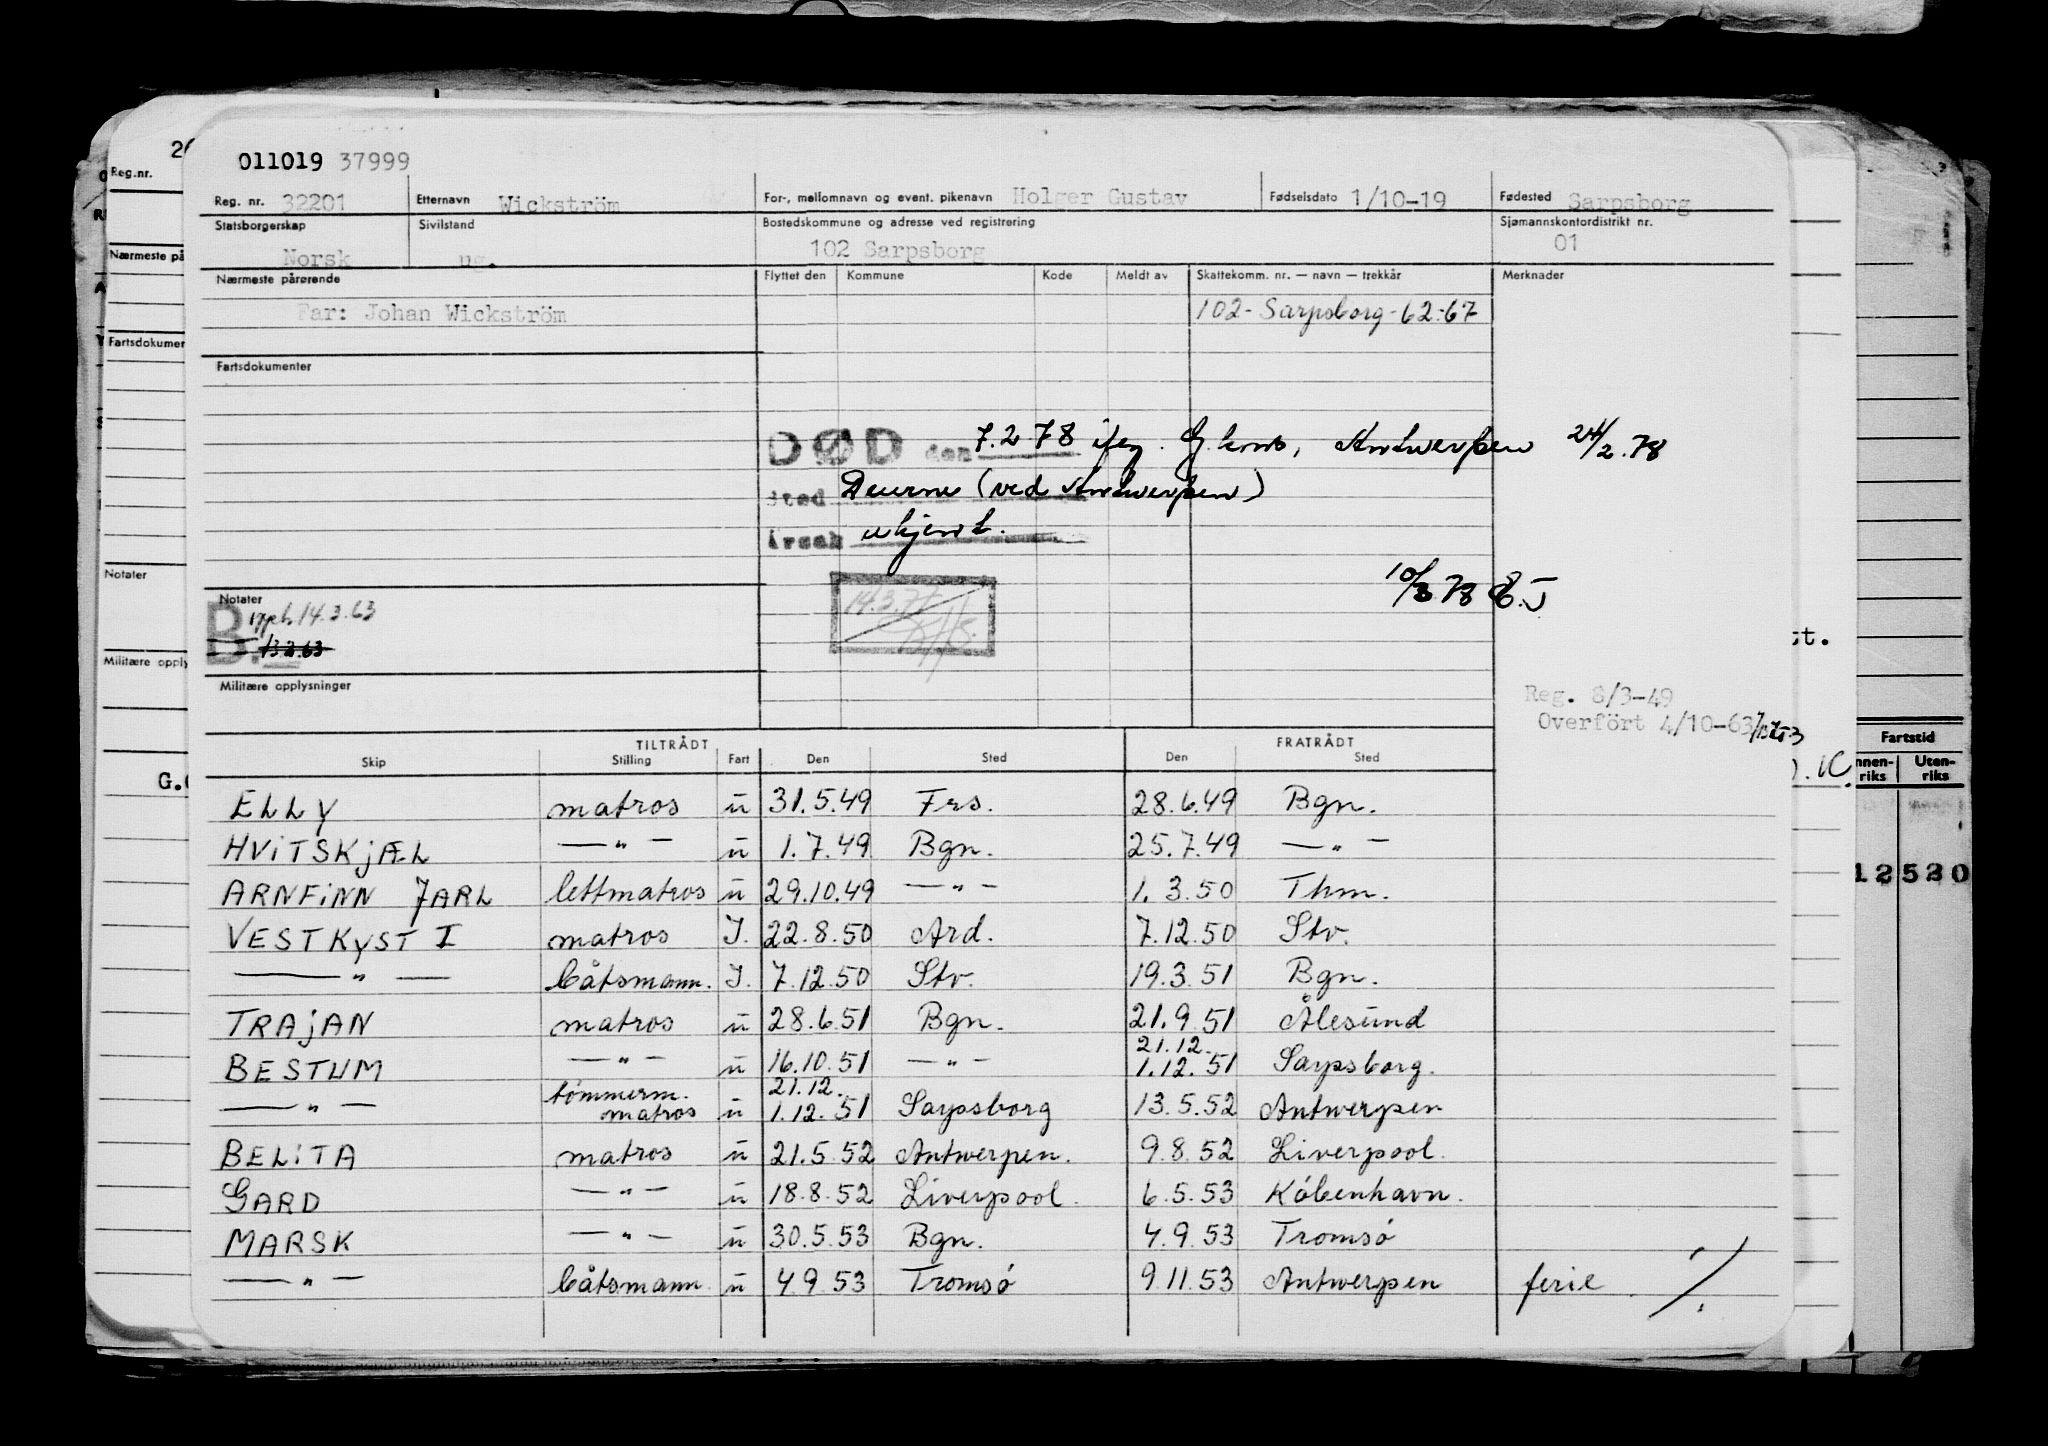 011019 37999
Reg. nr. 32201 Etternavn Wickström For-, mellomnavn og event. pikenavn Holger Gustav Fødselsdato 1/10-19 Fødested Sarpsborg
Statsborgerskap Sivilstand Bostedskommune og adresse ved registrering Sjømannskontordistrikt nr.
Norsk ug. 102 Sarpsborg 01
Nærmeste pårørende Flyttet den Kommune Kode Meldt av Skattekomm. nr. — navn — trekkår Merknader
Far: Johan Wickström 102- Sarpsborg-62-67
Fartsdokumenter
DØD den 7.2.78 iføg. G. kons, Antwerpen 24/2.78
Sted Deurne (ved Antwerpen)
Årsak ukjent.
10/3 78
Notater
B 14.3.63
B. 13.2.63
Militære opplysninger
Reg. 8/3-49
Overfört 4/10-63
TILTRÅDT FRATRÅDT
Skip Stilling Fart Den Sted Den Sted
ELLY matros ū 31.5.49 Frs. 28.6.49 Bgn.
HViTSKjÆL —"— ū 1.7.49 Bgn. 25.7.49 —"—
ARNFiNN JARL lettmatros ū 29.10.49 —"— 1.3.50 Thm.
VESTKYST I matros I. 22.8.50 Ard. 7.12.50 Stv.
—"— båtsmann. I. 7.12.50 Stv. 19.3.51 Bgn.
TRAjAN matros ū 28.6.51 Bgn. 21.9.51 Ålesund
BESTUM —"— ū 16.10.51 —"— 21.12. 1.12.51 Sarpsborg.
—"— tömmerm. matros ū 21.12. 1.12.51 Sarpsborg 13.5.52 Antwerpen
BELiTA matros ū 21.5.52 Antwerpen. 9.8.52 Liverpool.
GARD —"— ū 18.8.52 Liverpool. 6.5.53 København.
MARSK —"— ū 30.5.53 Bgn. 4.9.53 Tromsø
—"— båtsmann. ū 4.9.53 Tromsø 9.11.53 Antwerpen ferie ./.
Reg.nr.
Nærmeste på
Fartsdokumen
Notater
Militære opply
Fartstid
nnen-riks Uten-riks
12520